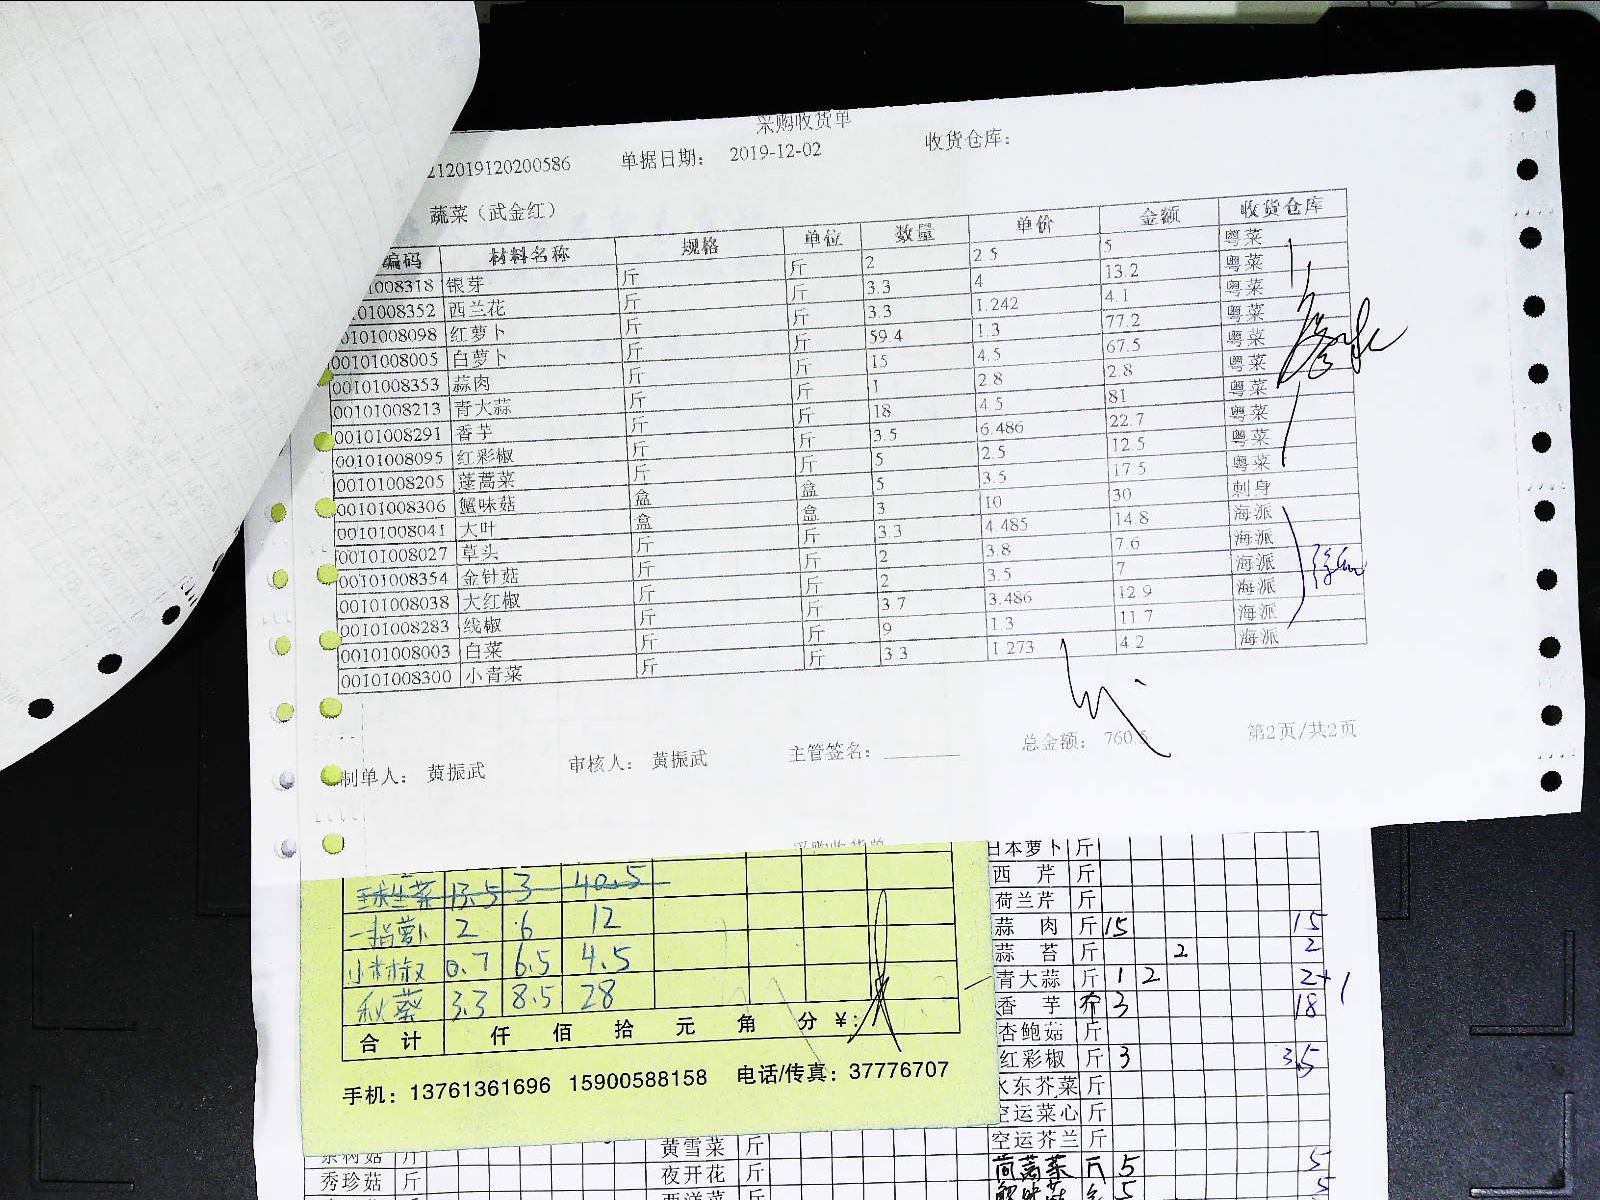 采购收货单
212019120200586 单据日期： 2019-12-02 收货仓库：
蔬菜（武金红）
编码 材料名称 规格 单位 数量 单价 金额 收货仓库
01008318 银芽 斤 斤 2 2.5 5 粤菜
0101008352 西兰花 斤 斤 3.3 4 13.2 粤菜
0101008098 红萝卜 斤 斤 3.3 1.242 4.1 粤菜
00101008005 白萝卜 斤 斤 59.4 1.3 77.2 粤菜
00101008353 蒜肉 斤 斤 15 4.5 67.5 粤菜
00101008213 青大蒜 斤 斤 1 2.8 2.8 粤菜
00101008291 香芋 斤 斤 18 4.5 81 粤菜
00101008095 红彩椒 斤 斤 3.5 6.486 22.7 粤菜
00101008205 蓬蒿菜 斤 斤 5 2.5 12.5 粤菜
00101008306 蟹味菇 盒 盒 5 3.5 17.5 粤菜
00101008041 大叶 盒 盒 3 10 30 刺身
00101008027 草头 斤 斤 3.3 4.485 14.8 海派
00101008354 金针菇 斤 斤 2 3.8 7.6 海派
00101008038 大红椒 斤 斤 2 3.5 7 海派
00101008283 线椒 斤 斤 3.7 3.486 12.9 海派
00101008003 白菜 斤 斤 9 1.3 11.7 海派
00101008300 小青菜 斤 斤 3.3 1.273 4.2 海派
制单人： 黄振武 审核人： 黄振武 主管签名： 总金额： 760.5 第2页/共2页
球生菜 13.5 3 40.5
一指萝卜 2 6 12
小米椒 0.7 6.5 4.5
秋葵 3.3 8.5 28
合计 仟 佰 拾 元 角 分 ￥：
手机：13761361696 15900588158 电话/传真：37776707
日本萝卜 斤
西芹 斤
荷兰芹 斤
蒜肉 斤 15 15
蒜苔 斤 2 2
青大蒜 斤 1 2 2+1
香芋 斤 3 18
杏鲍菇 斤
红彩椒 斤 3 3.5
水东芥菜 斤
空运菜心 斤
空运芥兰 斤
茼蒿菜 斤 5 5
蟹味菇 盒 5 5
茶树菇 斤 黄雪菜 斤
秀珍菇 斤 夜开花 斤
西洋菜 斤